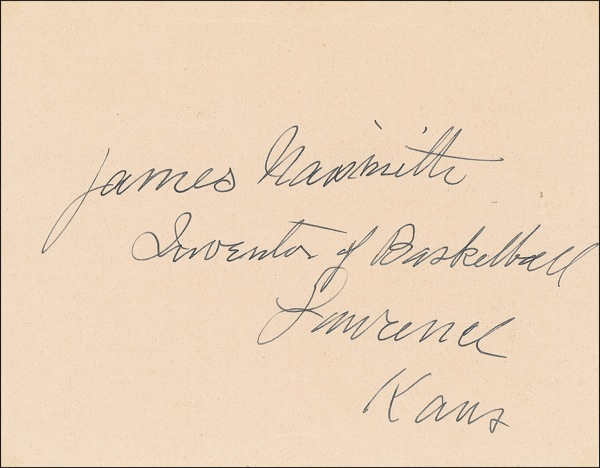 James Naismith
Inventor of Basketball
Lawrence
Kans